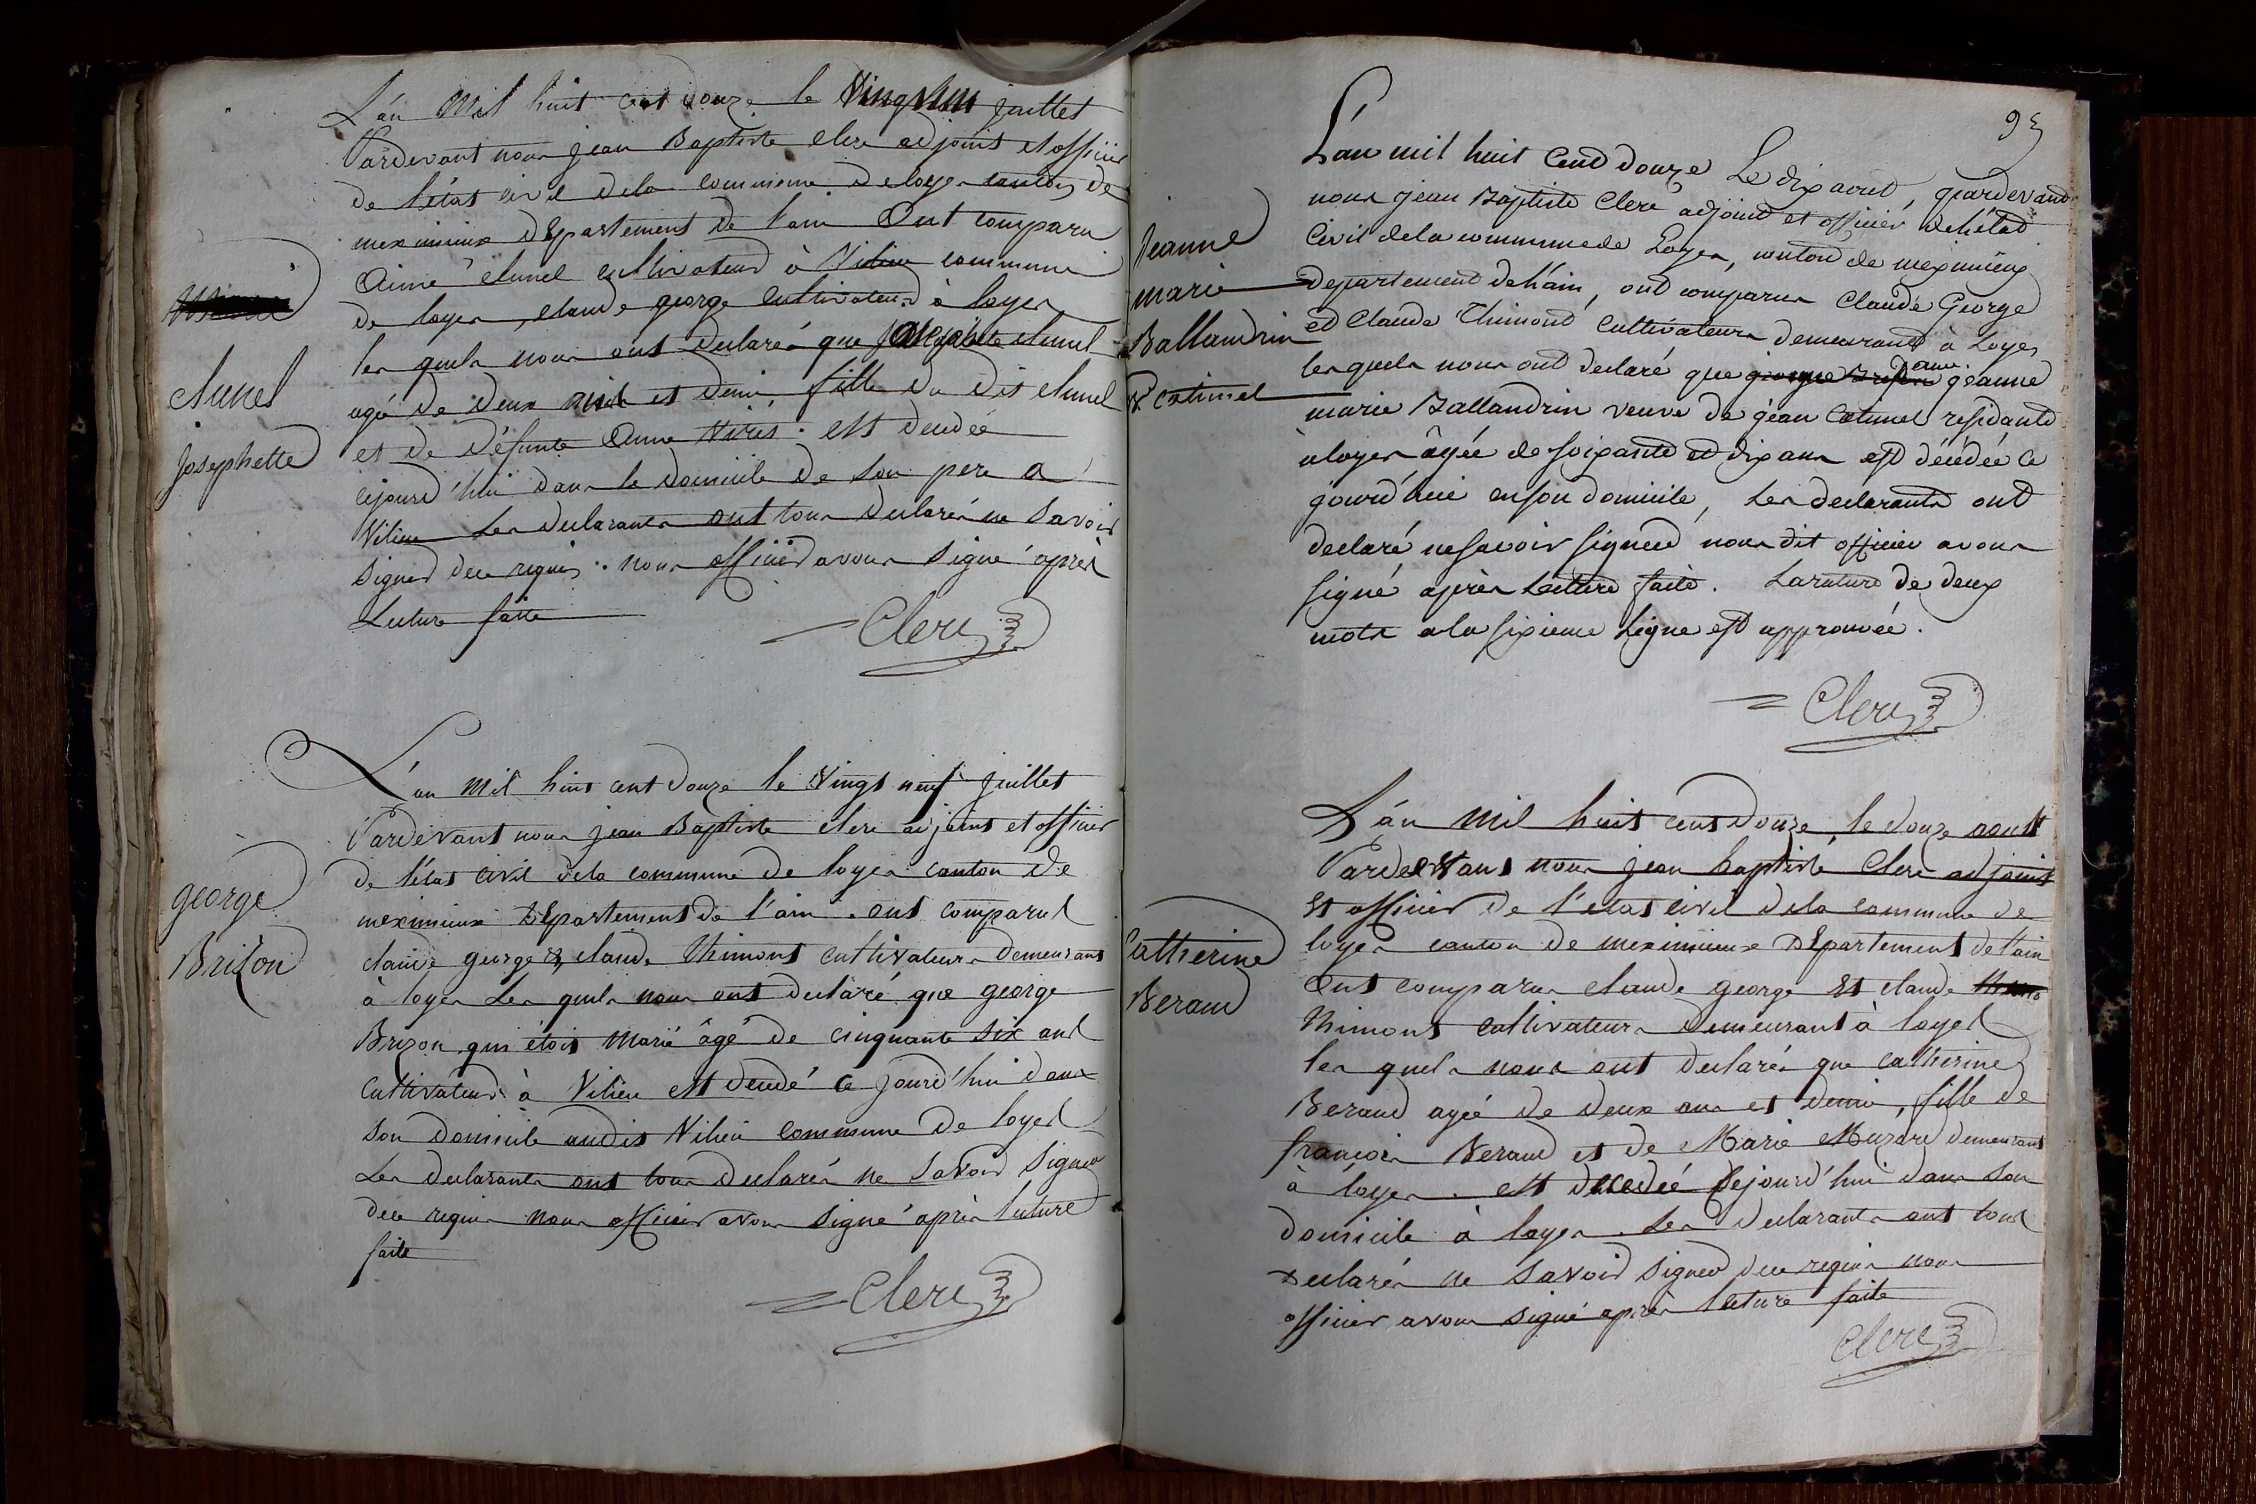 L'an Mil huit cent douze le juillet
Pardevant nous jean Baptiste Clerc adjoint et officier
de l'état civil dela commune de loyes canton de
meximieux département de l'ain Ont comparu
Aimé Clunel cultivateur à Vilieu commune
de loyes, claude george cultivateur à loyes
les quels nous ont déclarés que josephte Clunel
agé de deux ans et demi, fille du dit Clunel
et de défunte Anne . est decédé
cejourd'hui dans le domicile de son pere a
Vilieu Les declarants ont tous declarés ne savoir
signer de ce requis . nous officier avons signé après
Lecture faite
Clerc
Clunel
josephette
L'an Mil huit cent douze le Vingt neuf juillet
Pardevant nous jean Baptiste Clerc adjoint et officier
de l'état civil dela commune de loyes canton de
meximieux Département de l'ain . ont comparus
claude george & claude thimont cultivateurs demeurant
à loyes Les quels nous ont declaré que george
Brizon qui étoit Marié âgé de cinquante six ans
cultivateur à Vilieu est decedé ce jourd'hui dans
son domicile audit Vilieu commune de loyes
Les declarants ont tous declarés ne savoir signer
de ce requis nous officier avons signé après lecture
faite
Clerc
george
Brizon
93
L'an mil huit cent douze Le dix aout, pardevant
nous jean Baptiste Clerc adjoint et officier de l'état
Civil dela commune de Loyes, canton de meximieux
departement de l'ain, ont comparus Claude George
et Claude Thimont Cultivateurs demeurant à Loyes
lesquels nous ont declaré que george Brison jeanne
marie Ballandrin veuve de jean Catimel residante
à loyes âgée de soixante et dix ans est décédée ce
jourd'hui en son domicile, Les declarants ont
declaré ne savoir signer nous dit officier avons
signé après Lecture faite. La rature de deux
mots a la sixieme Ligne est approuvée.
Clerc
Jeanne
marie
Ballandrin
Catimel
L'an Mil huit cent Douze, le douze aoust
Pardevant nous jean baptiste Clerc adjoint
Et officier de l'etat civil dela commune de
loyes canton de meximieux Département de l'ain
Ont comparus claude george Et claude
thimont cultivateurs demeurant à loyes
les quels nous ont declarés que catherine
Beraud agée de deux ans et demie, fille de
françois Beraud et de Marie demeurant
à loyes . est decedée cejourd'hui dans son
domicile à loyes . Les declarants ont tous
declarés ne savoir signer de ce requis nous
officier avons signé après lecture faite
Clerc
Catherine
Beraud